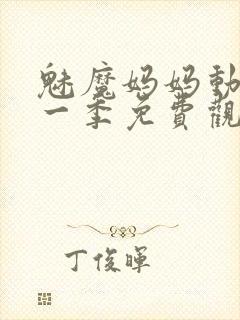 魅魔妈妈动
一季免費觀
丁俊暉